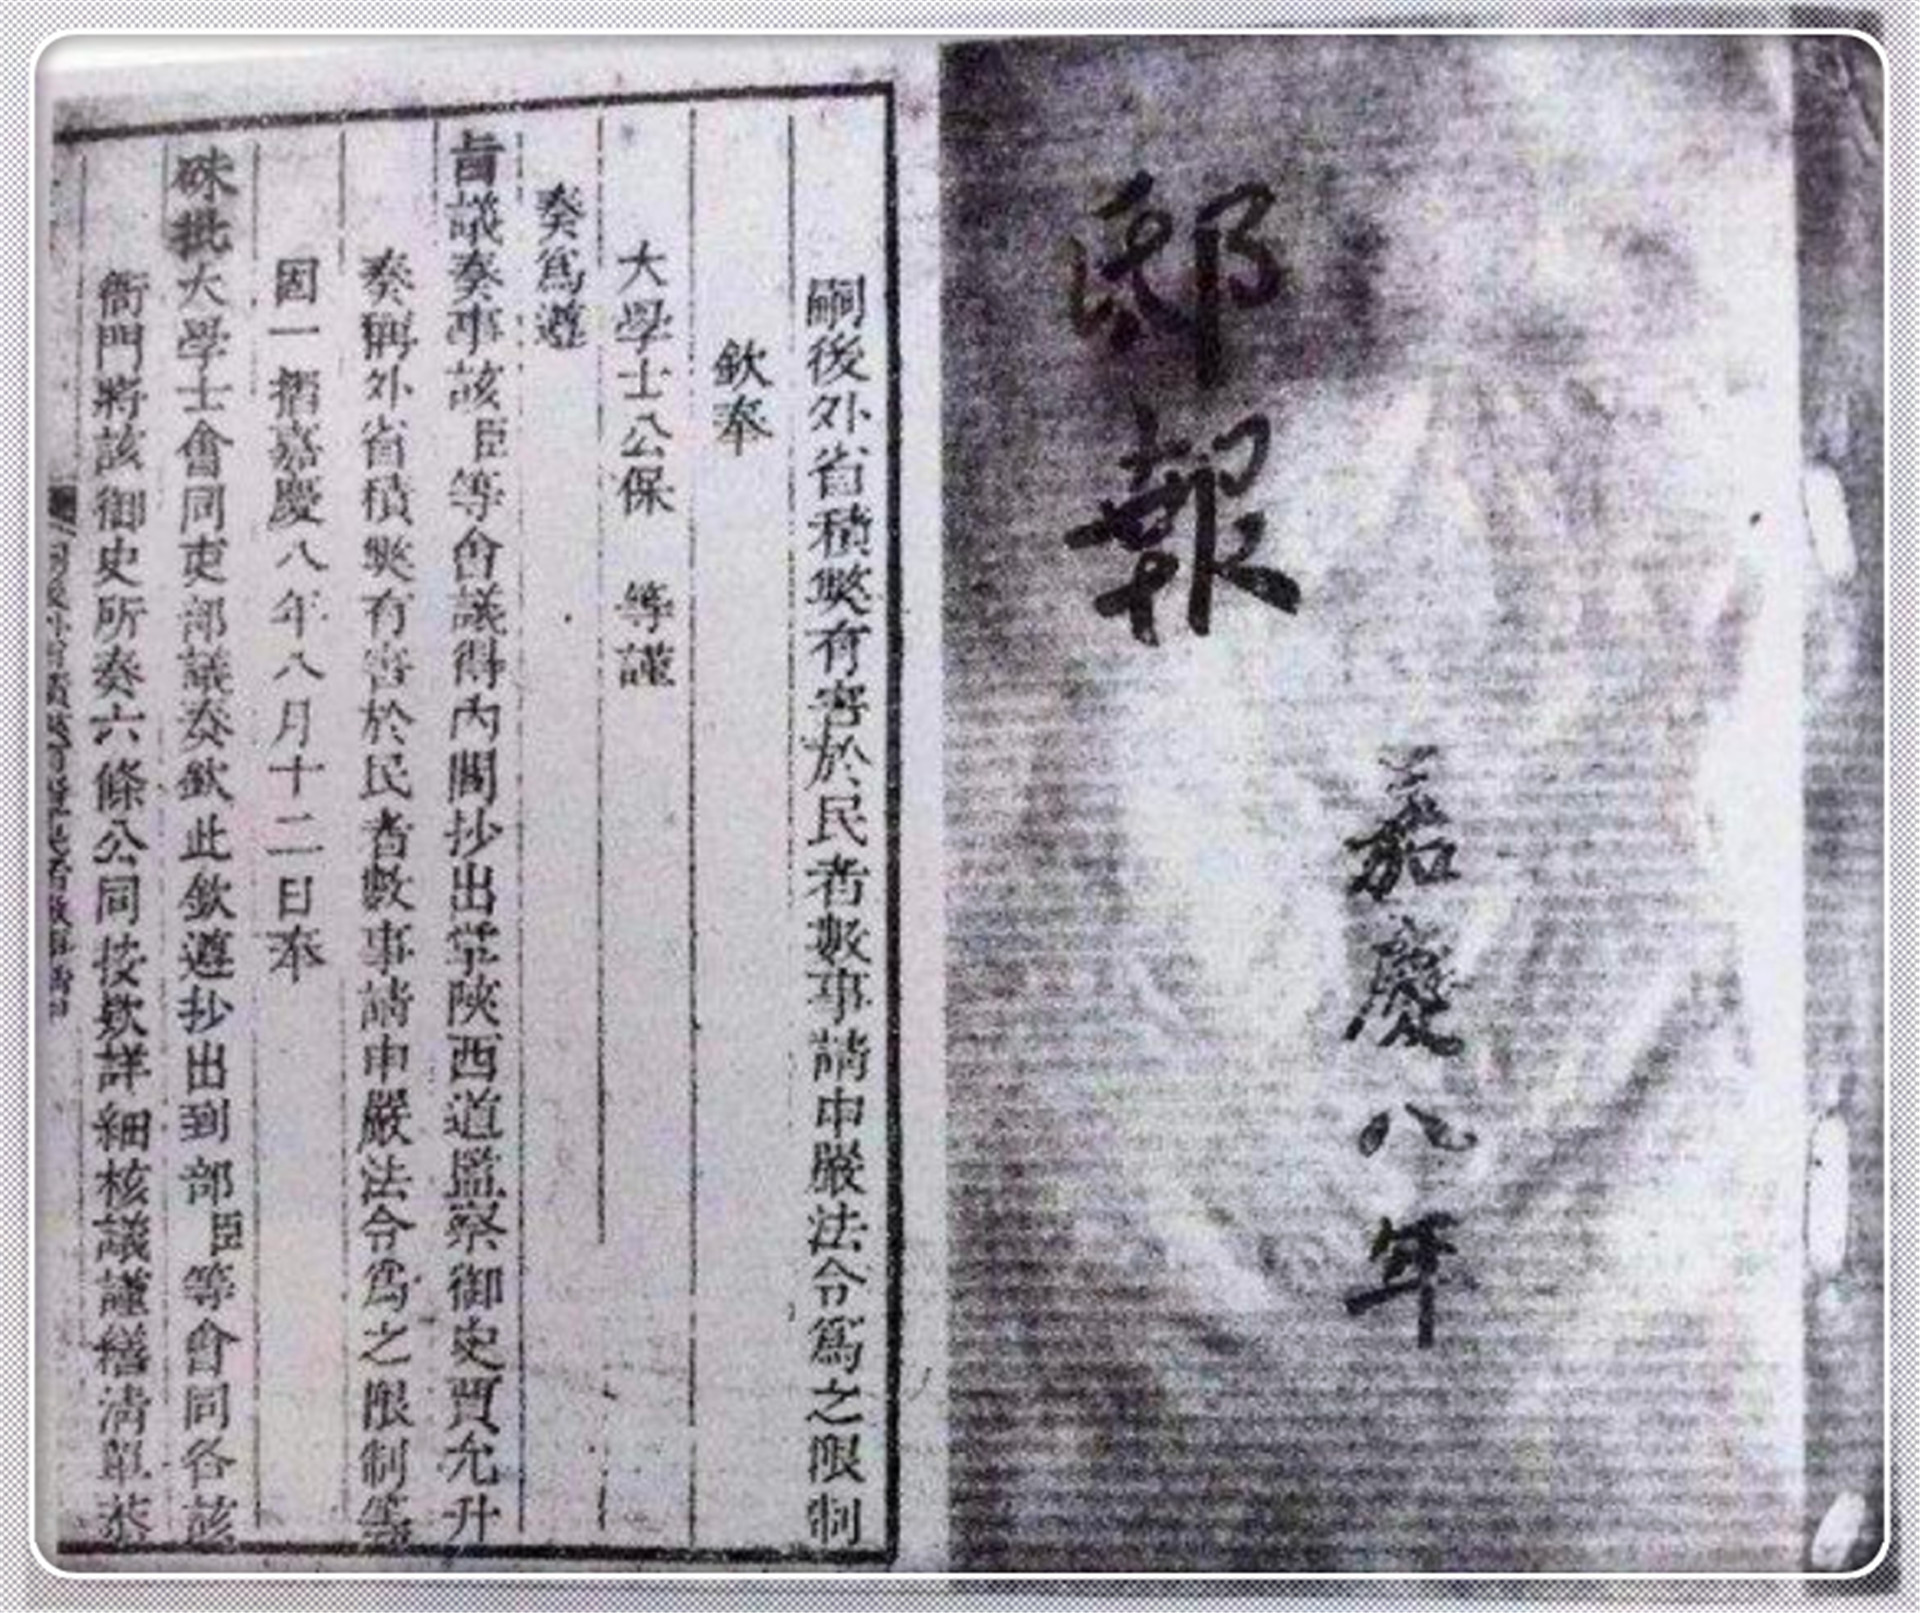 邸報
嘉慶八年
嗣後外省積獘有害於民者數事請申嚴法令爲之限制
欽奉
大學士公保 等謹
奏爲遵
旨議奏事該臣等會議得內閣抄出掌陝西道監察御史賈允升
奏稱外省積獘有害於民者數事請申嚴法令爲之限制等
因一摺嘉慶八年八月十二日奉
硃批大學士會同吏部議奏欽此欽遵抄出到部臣等會同各該
衙門將該御史所奏六條公同按欵詳細核議謹繕清單恭